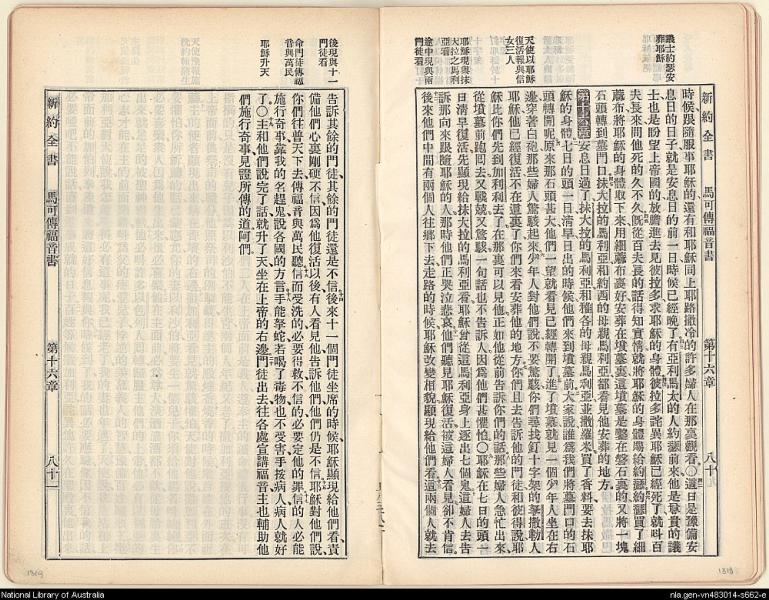 義士約瑟安葬耶穌
天使以耶穌復活報與信女三人
耶穌現與抹大拉之馬利亞看
途中現與兩門徒看
新約全書 馬可傳福音書 第十六章 八十
時候跟隨服事耶穌的還有和耶穌同上耶路撒冷的許多婦人在那裏觀看○這日是豫備安
息日的日子就是安息日的前一日時候已經晚了有亞利馬太的人約瑟前來他是尊貴的議
士也是盼望上帝國的放膽進去見彼拉多求耶穌的身體彼拉多詫異耶穌已經死了就叫百
夫長來問他死的久不久既從百夫長的話得知實情就將耶穌的身體賜給約瑟約瑟買了細
蔴布將耶穌的身體取下來用細蔴布裹好安葬在墳墓裏這墳墓是鑿在磐石裏的又將一塊
石頭轉到墓門口抹大拉的馬利亞和約西的母親馬利亞都看見他安葬的地方
第十六章 安息日過了抹大拉的馬利亞和雅各的母親馬利亞並撒羅米買了香料要去抹耶
穌的身體七日的頭一日清早日出的時候他們來到墳墓前大家說誰為我們將墓門口的石
頭轉開呢原來那石頭甚大他們一望就看見已經轉開了進了墳墓就見一個少年人坐在右
邊穿著白袍那些婦人驚駭起來少年人對他們說不要驚駭你們尋找釘十字架的拿撒勒人
耶穌他已經復活不在這裏了你們來看安葬他的地方你們且去告訴他的門徒和彼得說耶
穌比你們先到加利利去了在那裏可以見他正如他從前告訴你們的話那些婦人急忙出來
從墳墓前跑回去又戰兢又驚駭一句話也不告訴人因為他們甚懼怕○耶穌在七日的頭一
日清早復活先顯現給抹大拉的馬利亞看耶穌曾從這馬利亞身上逐出七個鬼這婦人去告
訴那向來跟隨耶穌的人那時他們正哭泣悲哀他們聽見耶穌復活被這婦人看見卻不肯信
後來他們中間有兩個人往鄉下去走路的時候耶穌改變相貌顯現給他們看這兩個人就去
後現與十一門徒看
命門徒傳福音與萬民
耶穌升天
告訴其餘的門徒其餘的門徒還是不信後來十一個門徒坐席的時候耶穌顯現給他們看責
備他們心裏剛硬不信因為他復活以後有人看見他告訴他們他們仍是不信耶穌對他們說
你們往普天下去傳福音與萬民聽信而受洗的必要得救不信的必要定他的罪信的人必能
施行奇事靠我的名趕鬼說各國的方言手能拏蛇若喝了毒物也不受害手按病人病人就好
了○主和他們說完了話就升了天坐在上帝的右邊門徒出去往各處宣講福音主也輔助他
們施行奇事見證所傳的道阿們
新約全書 馬可傳福音書 第十六章 八十一
1319
1318
National Library of Australia
nla.gen-vn483014-s662-e